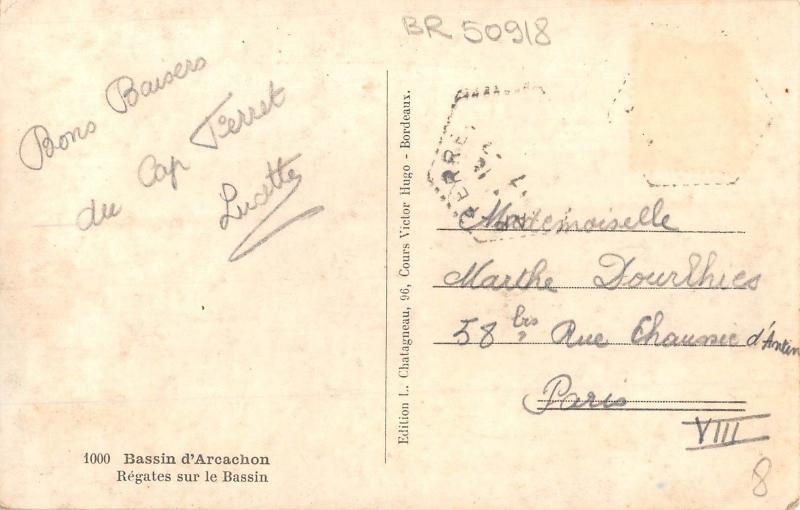 BR 50918
Bons Baisers
du Cap Ferret
Lucette
1000 Bassin d'Arcachon
Régates sur le Bassin
Edition L. Chatagneau, 96, Cours Victor Hugo - Bordeaux.
Mademoiselle
Marthe Dourthies
58 bis Rue Chaussée d'Antin
Paris
VIII
8